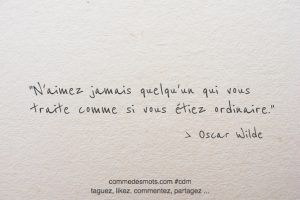 "N'aimez jamais quelqu'un qui vous
traite comme si vous étiez ordinaire."
> Oscar Wilde
commedesmots.com #cdm
taguez, likez, commentez, partagez ...